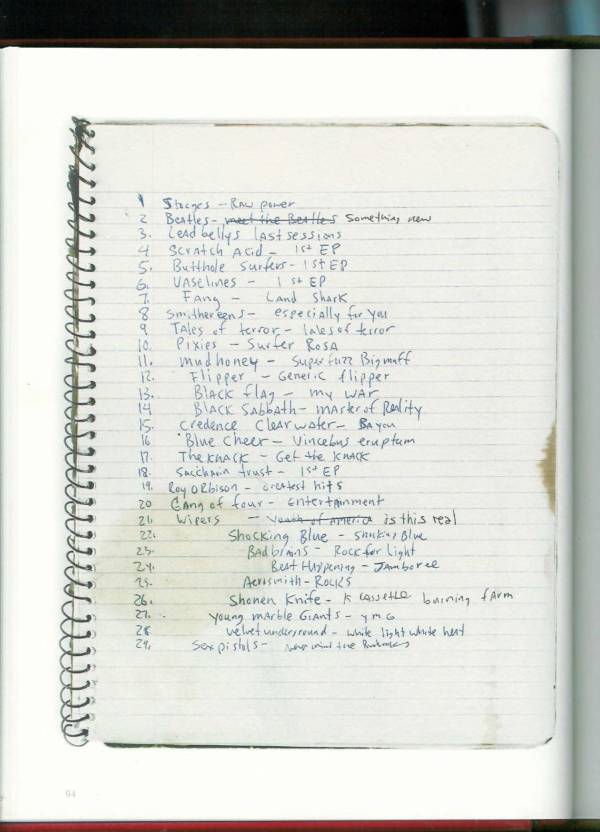 1 Stooges - Raw power
2 Beatles - meet the Beatles something new
3. Leadbellys last sessions
4 Scratch Acid - 1st EP
5. Butthole Surfers - 1st EP
6. Vaselines - 1st EP
7. Fang - Land Shark
8 Smithereens - especially for you
9 Tales of terror - tales of terror
10. Pixies - Surfer Rosa
11. mudhoney - Superfuzz Bigmuff
12. Flipper - Generic flipper
13. Black flag - my war
14 Black Sabbath - master of Reality
15. Credence Clearwater - Bayou
16 Blue Cheer - Vincebus eruptum
17. The Knack - Get the Knack
18. Saccharin trust - 1st EP
19. Roy Orbison - Greatest hits
20 Gang of four - Entertainment
21. Wipers - Youth of America is this real
22. Shocking Blue - Shocking Blue
23. Bad brains - Rock for Light
24. Beat Happening - Jamboree
25. Aerosmith - Rocks
26. Shonen Knife - K cassette burning farm
27. Young Marble Giants - YMG
28 velvet underground - white light white heat
29. Sex pistols - never mind the
94